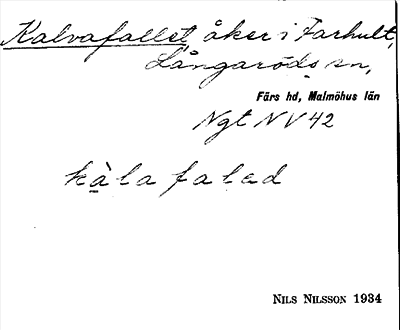 Kalvafallet, åker i Farhult,
Långaröds sn,
Färs hd, Malmöhus län
Ngt NV 42
kàla falad
NILS NILSSON 1934